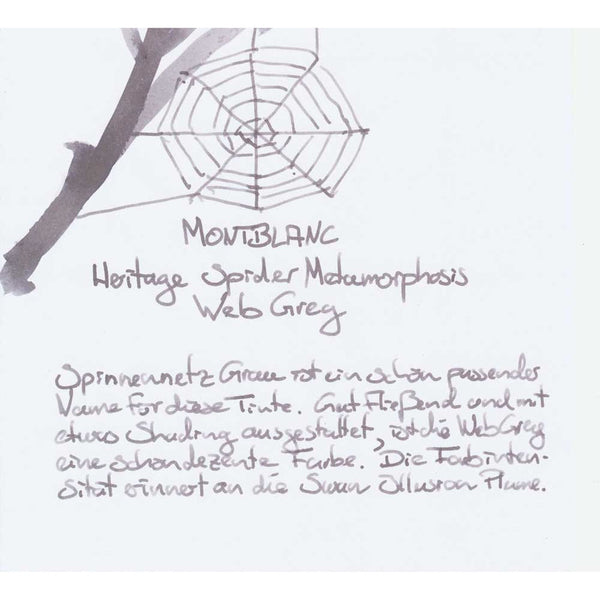 MONTBLANC
Heritage Spider Metamorphosis
Web Grey
Spinnennetz Grau ist ein schön passender
Name für diese Tinte. Gut fließend und mit
etwas Shading ausgestattet, ist die Web Grey
eine schön dezente Farbe. Die Farbinten-
sität erinnert an die Swan Illusion Plume.